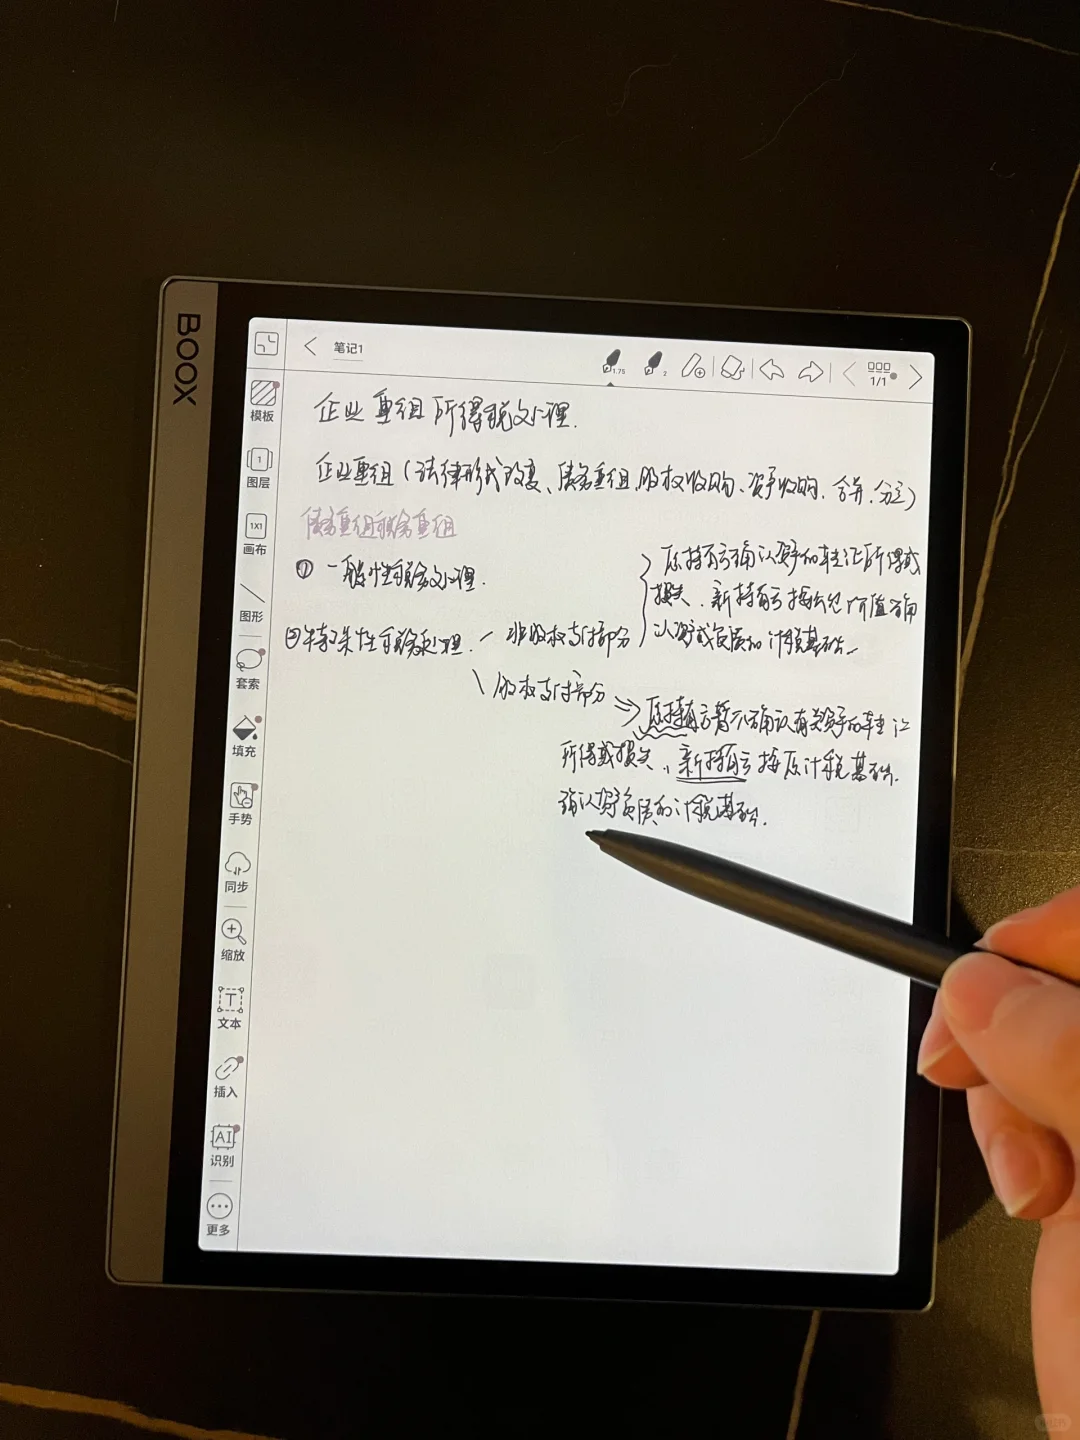 BOOX
笔记1
1.75
2
1/1
模板
1
图层
1X1
画布
图形
套索
填充
手势
同步
缩放
T
文本
插入
AI
识别
更多
企业重组所得税处理.
企业重组(法律形式改变、债务重组、股权收购、资产收购、合并、分立)
债务重组
①一般性税务处理.
②特殊性税务处理. 非股权支付部分
原持有方确认资产的转让所得或
损失、新持有方按公允价值确
认资产或负债的计税基础
股权支付部分 ⇒ 原持有方暂不确认有关资产的转让
所得或损失、新持有方按原计税基础
确认资产负债的计税基础.